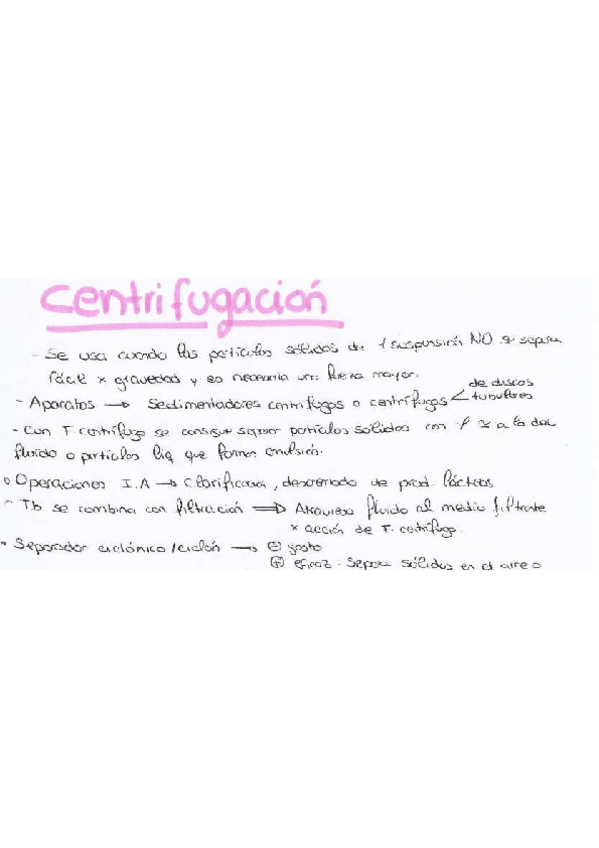 Centrifugación
- Se usa cuando las partículas sólidas de 1 suspensión NO se separa
fácil x gravedad y es necesaria una fuerza mayor.
- Aparatos → Sedimentadores centrífugos o centrífugas < de discos
tubulares
- Con F. centrífuga se consigue separar partículas sólidas con ρ ≃ a la del
fluido o partículas líq que forman emulsión.
o Operaciones I.A → Clarificación, descremado de prod. lácteos
- Tb se combina con filtración ⇒ Atraviesa fluido al medio filtrante
x acción de F. centrífuga.
• Separador ciclónico / ciclón → ⊖ gasto
⊕ eficaz: Separa sólidos en el aire o